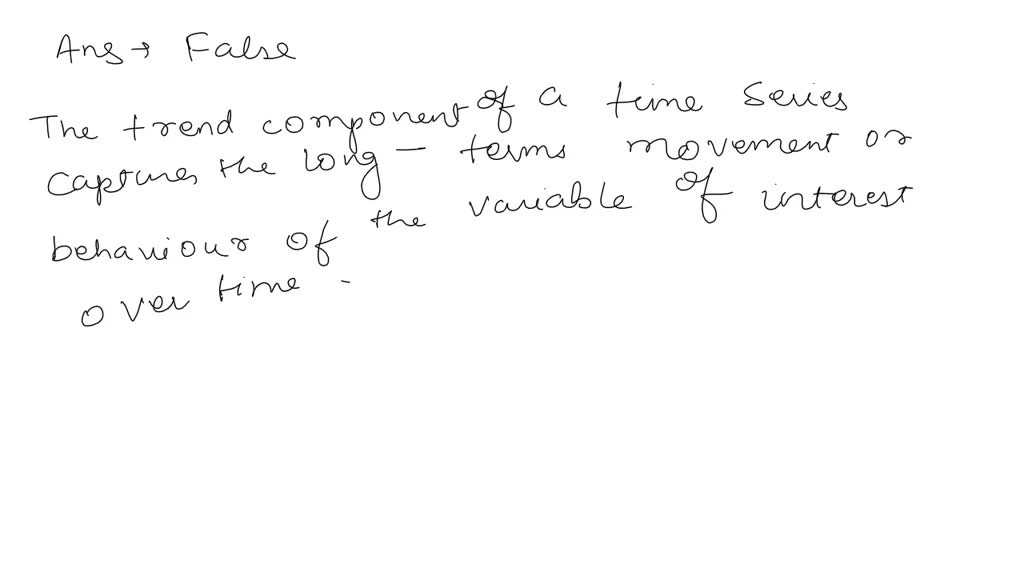 Ans → False
The trend component of a time series
captures the long - terms movement or
behaviour of the variable of interest
over time -